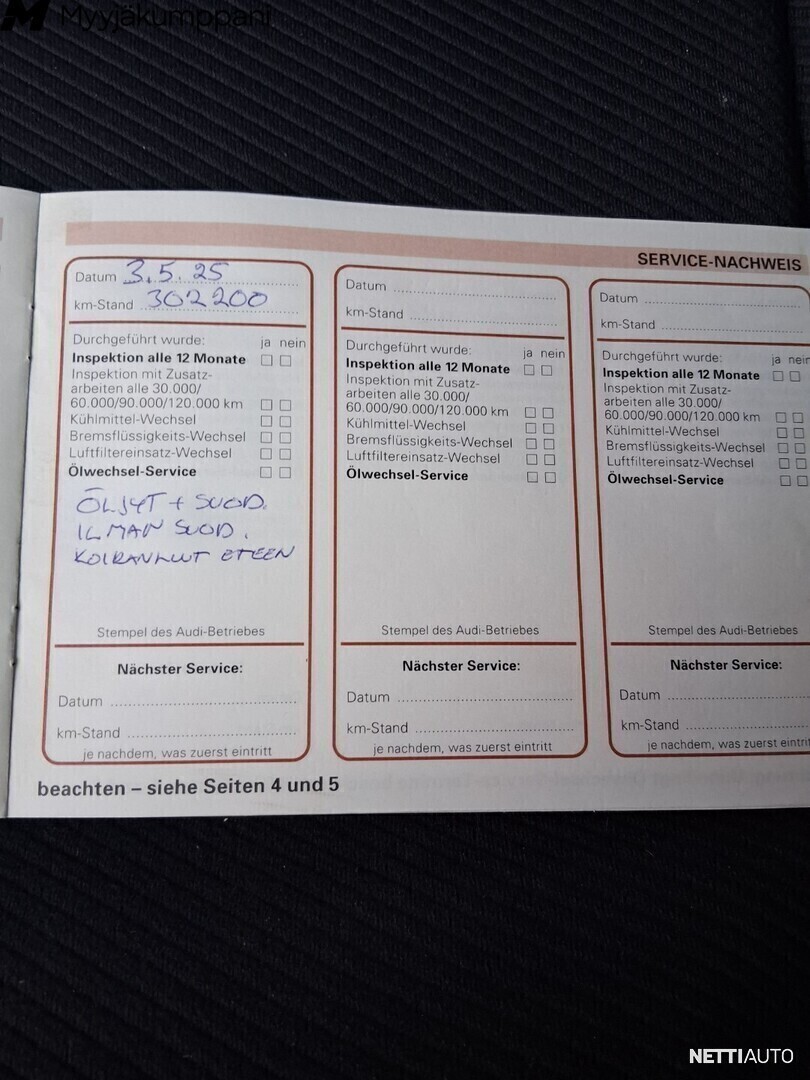 Myyjäkumppani
SERVICE-NACHWEIS
Datum 3.5.25
km-Stand 302200
Durchgeführt wurde: ja nein
Inspektion alle 12 Monate
Inspektion mit Zusatz-
arbeiten alle 30.000/
60.000/90.000/120.000 km
Kühlmittel-Wechsel
Bremsflüssigkeits-Wechsel
Luftfiltereinsatz-Wechsel
Ölwechsel-Service
ÖLJYT + SUOD.
ILMAN SUOD.
KOIRANLUUT ETEEN
Stempel des Audi-Betriebes
Nächster Service:
Datum
km-Stand
je nachdem, was zuerst eintritt
Datum
km-Stand
Durchgeführt wurde: ja nein
Inspektion alle 12 Monate
Inspektion mit Zusatz-
arbeiten alle 30.000/
60.000/90.000/120.000 km
Kühlmittel-Wechsel
Bremsflüssigkeits-Wechsel
Luftfiltereinsatz-Wechsel
Ölwechsel-Service
Stempel des Audi-Betriebes
Nächster Service:
Datum
km-Stand
je nachdem, was zuerst eintritt
Datum
km-Stand
Durchgeführt wurde: ja nein
Inspektion alle 12 Monate
Inspektion mit Zusatz-
arbeiten alle 30.000/
60.000/90.000/120.000 km
Kühlmittel-Wechsel
Bremsflüssigkeits-Wechsel
Luftfiltereinsatz-Wechsel
Ölwechsel-Service
Stempel des Audi-Betriebes
Nächster Service:
Datum
km-Stand
je nachdem, was zuerst eintritt
beachten – siehe Seiten 4 und 5
NETTIAUTO